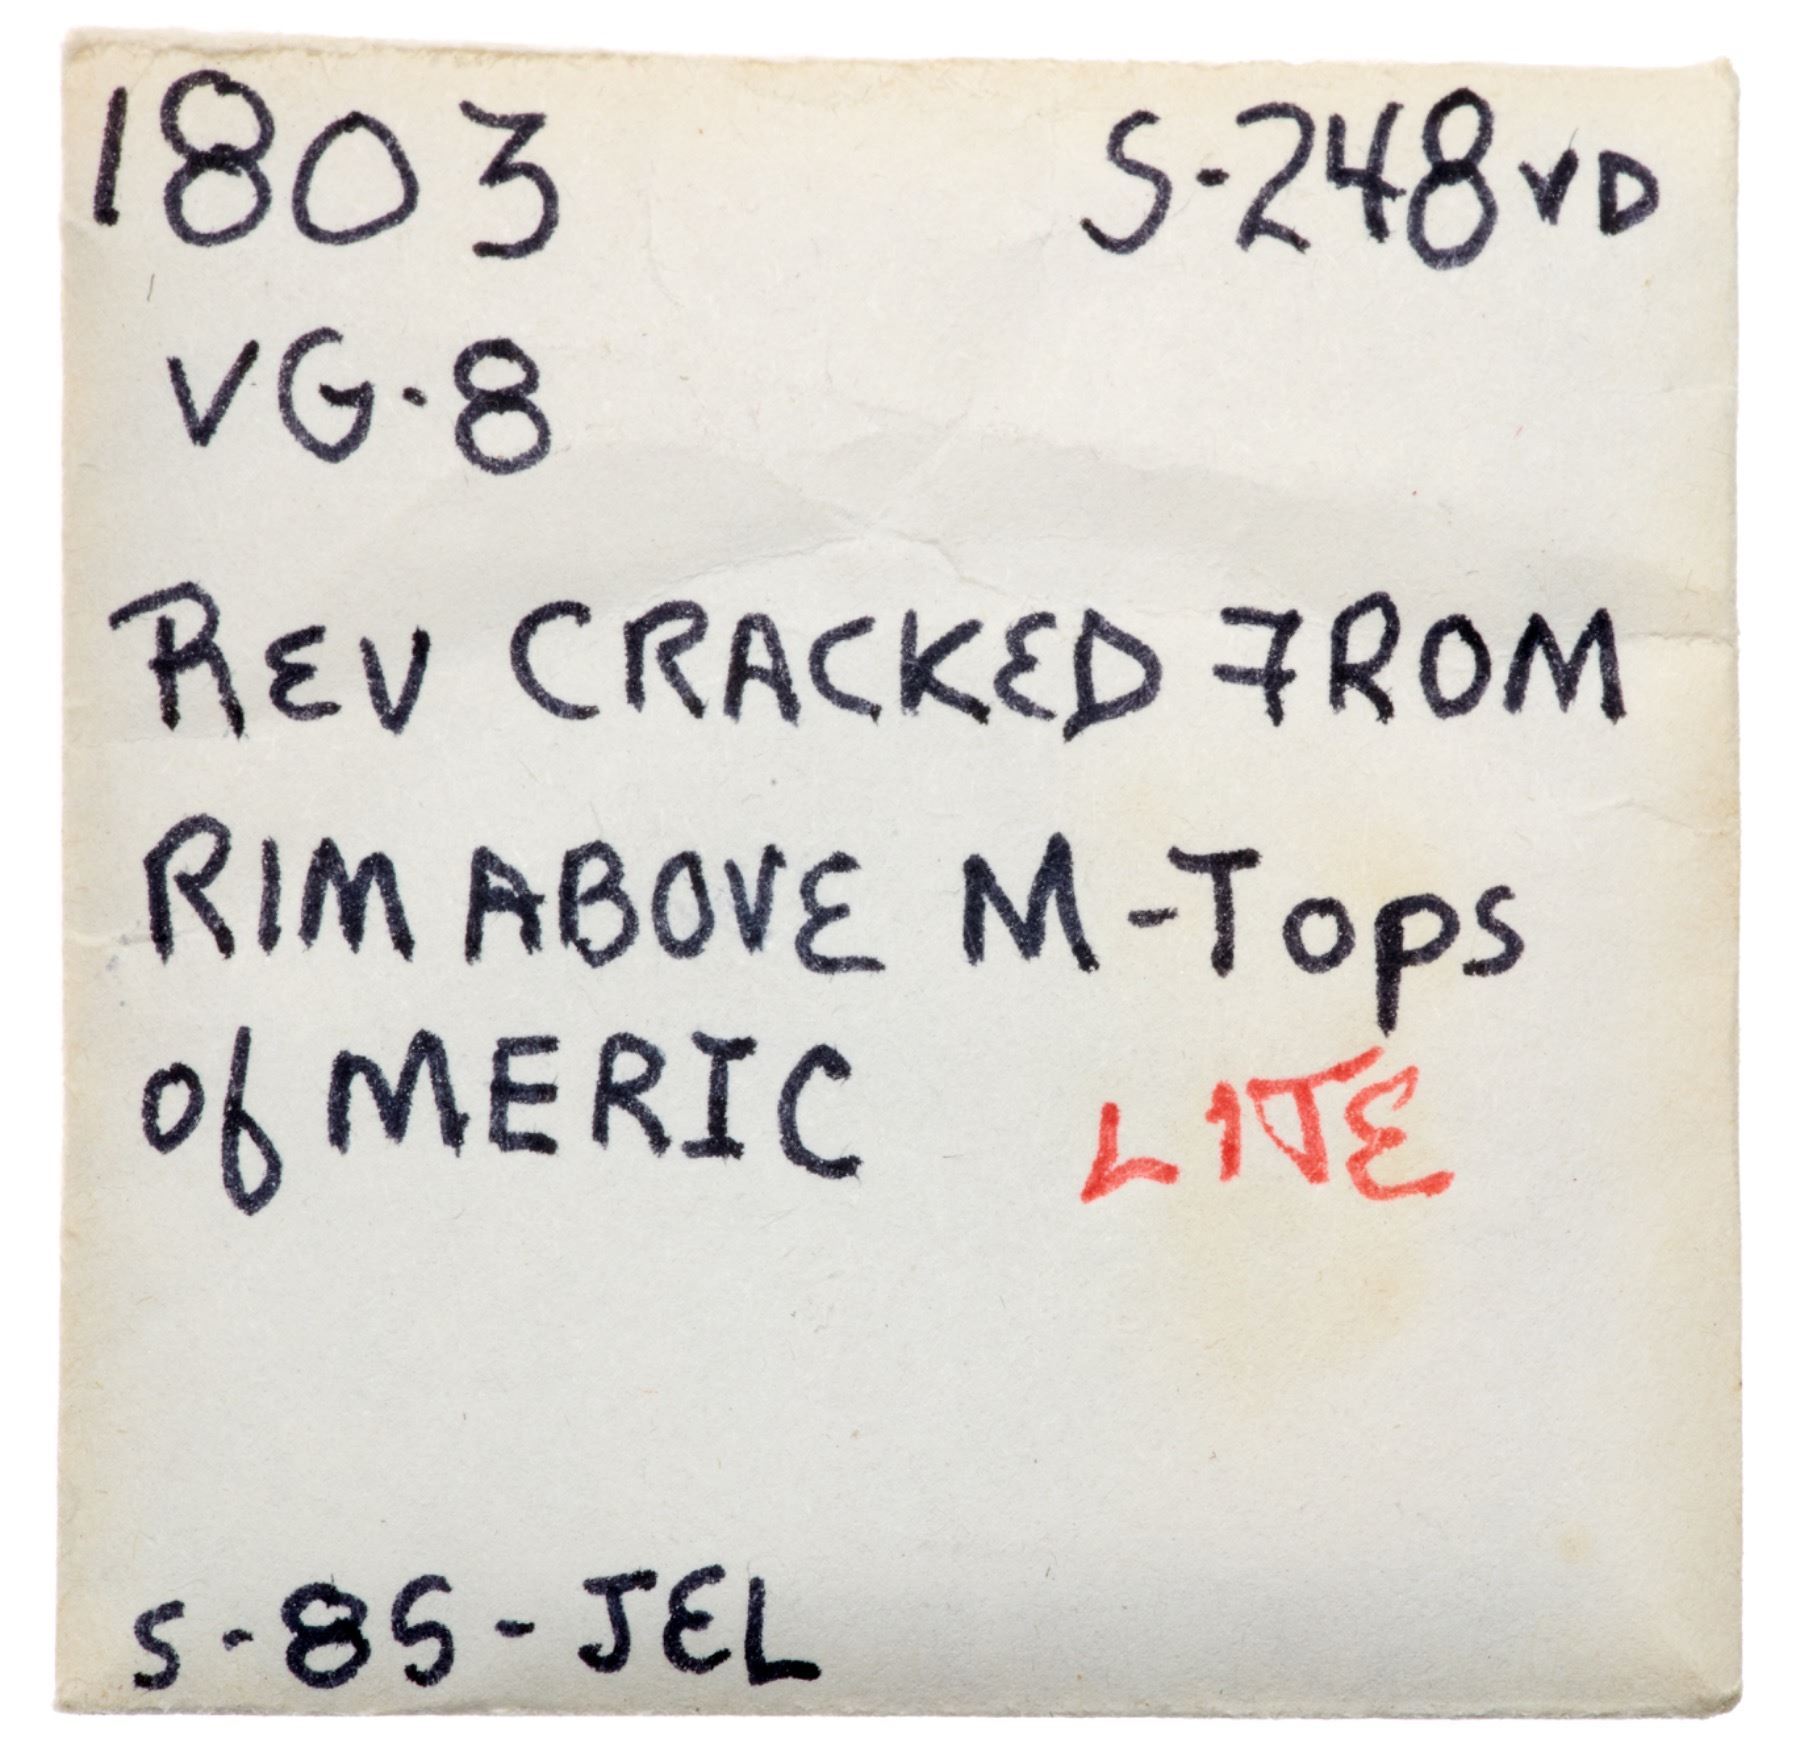 1803 S-248 VD
VG-8
REV CRACKED FROM
RIM ABOVE M-Tops
of MERIC LITE
S-85-JEL